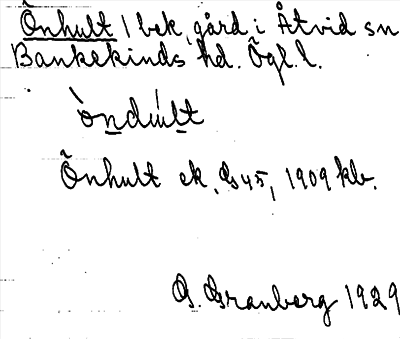 Õnhult / bek. gård i Åtvid sn
Bankekinds hd. Õgl. l.
Õnhult ek. Gs 45, 1909 kb.
G. Granberg 1929